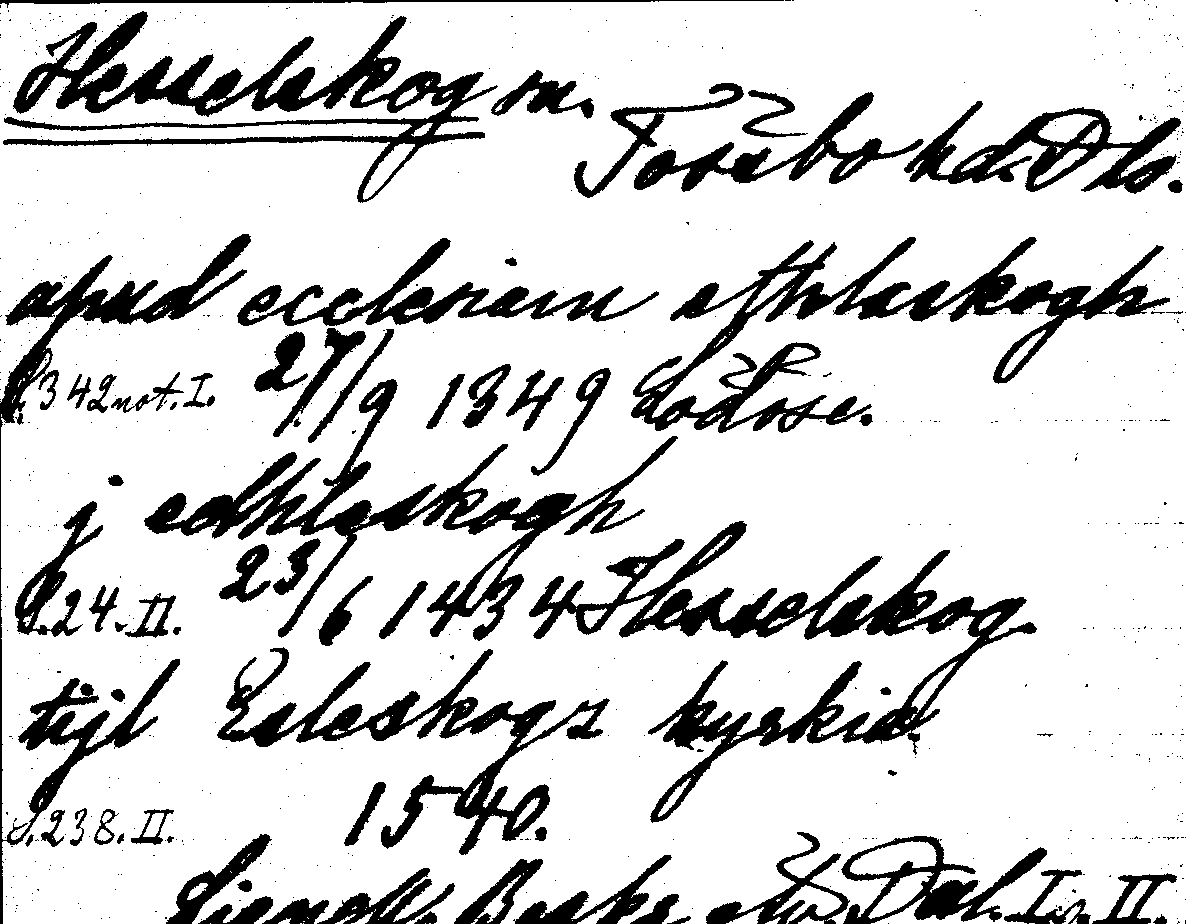 Hesselskog sn.
Tössbo hd. Dls.
apud ecclesiam ethlaskogh
S. 342 not. I. 27/9 1349 Lödöse.
j edhleskogh
S. 24. II. 23/6 1434 Hesselskog.
tijl Esleskogz kyrkia.
S. 238. II. 1540.
Dal. I o. II.